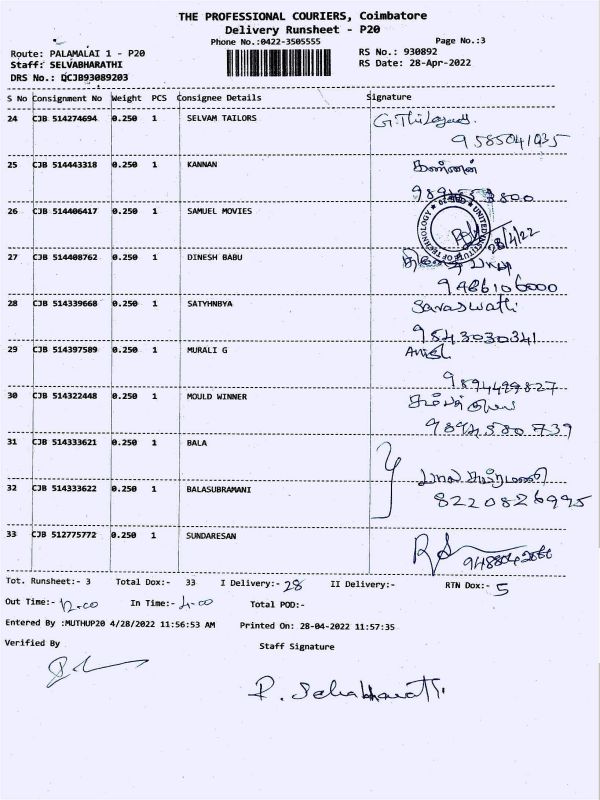 THE PROFESSIONAL COURIERS, Coimbatore
Delivery Runsheet - P20
Phone No.:0422-3505555
Page No.:3
Route: PALAMALAI 1 - P20
RS No.: 930892
Staff: SELVABHARATHI
RS Date: 28-Apr-2022
DRS No.: QCJB93089203
S No Consignment No Weight PCS Consignee Details Signature
24 CJB 514274694 0.250 1 SELVAM TAILORS
9585041035
25 CJB 514443318 0.250 1 KANNAN கண்ணன்
26 CJB 514406417 0.250 1 SAMUEL MOVIES
UNITED INSTITUTE OF TECHNOLOGY
28/4/22
27 CJB 514408762 0.250 1 DINESH BABU
9486106000
28 CJB 514339668 0.250 1 SATYHNBYA Saraswathi
9543030341
29 CJB 514397589 0.250 1 MURALI G
9894499827
30 CJB 514322448 0.250 1 MOULD WINNER
31 CJB 514333621 0.250 1 BALA
32 CJB 514333622 0.250 1 BALASUBRAMANI
8220826995
33 CJB 512775772 0.250 1 SUNDARESAN
Tot. Runsheet:- 3 Total Dox:- 33 I Delivery:- 28 II Delivery:- RTN Dox:- 5
Out Time:- 12.00 In Time:- 4.00 Total POD:-
Entered By :MUTHUP20 4/28/2022 11:56:53 AM Printed On: 28-04-2022 11:57:35
Verified By Staff Signature
P. Selvabharathi